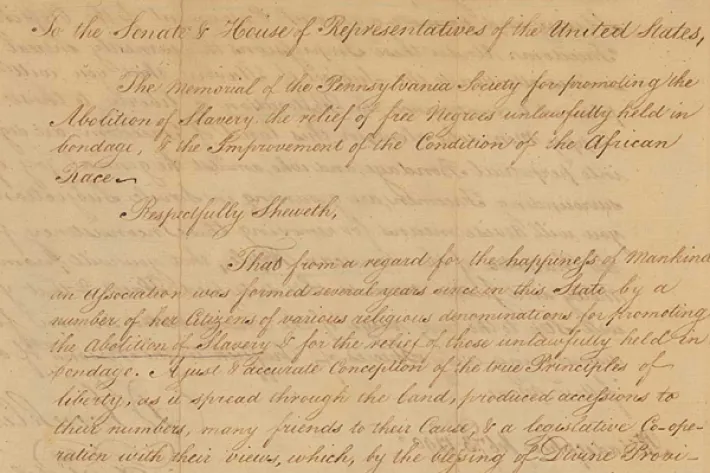 To the Senate & House of Representatives of the United States,
The Memorial of the Pennsylvania Society for promoting the
Abolition of Slavery the relief of free Negroes unlawfully held in
bondage, & the Improvement of the Condition of the African
Race
Respectfully Sheweth,
That from a regard for the happiness of Mankind
an Association was formed several years since in this State by a
number of her Citizens of various religious denominations for promoting
the Abolition of Slavery & for the relief of those unlawfully held in
bondage. A just & accurate Conception of the true Principles of
liberty, as it spread through the land, produced accessions to
their numbers, many friends to their Cause, & a legislative Co-ope-
ration with their views, which, by the blessing of Divine Provi-